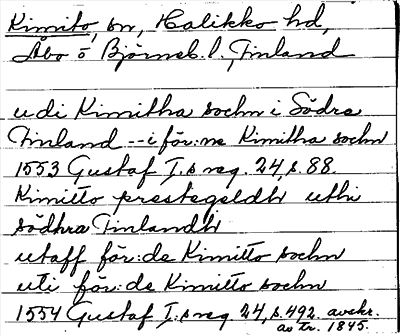 Kimito, sn, Halikko hd,
Åbo o Björneb. l. Finland
udi Kimitha sochn i Södra
Finland -- i för:ne Kimitha sochn
1553 Gustaf I:s reg. 24, s. 88.
Kimitto prestegeldh uthi
södhra Finlandh
utaff för:de Kimitto sochn
uti för:de Kimitto sochn
1554 Gustaf I:s reg. 24, s. 492. avskr.
av tr. 1845.